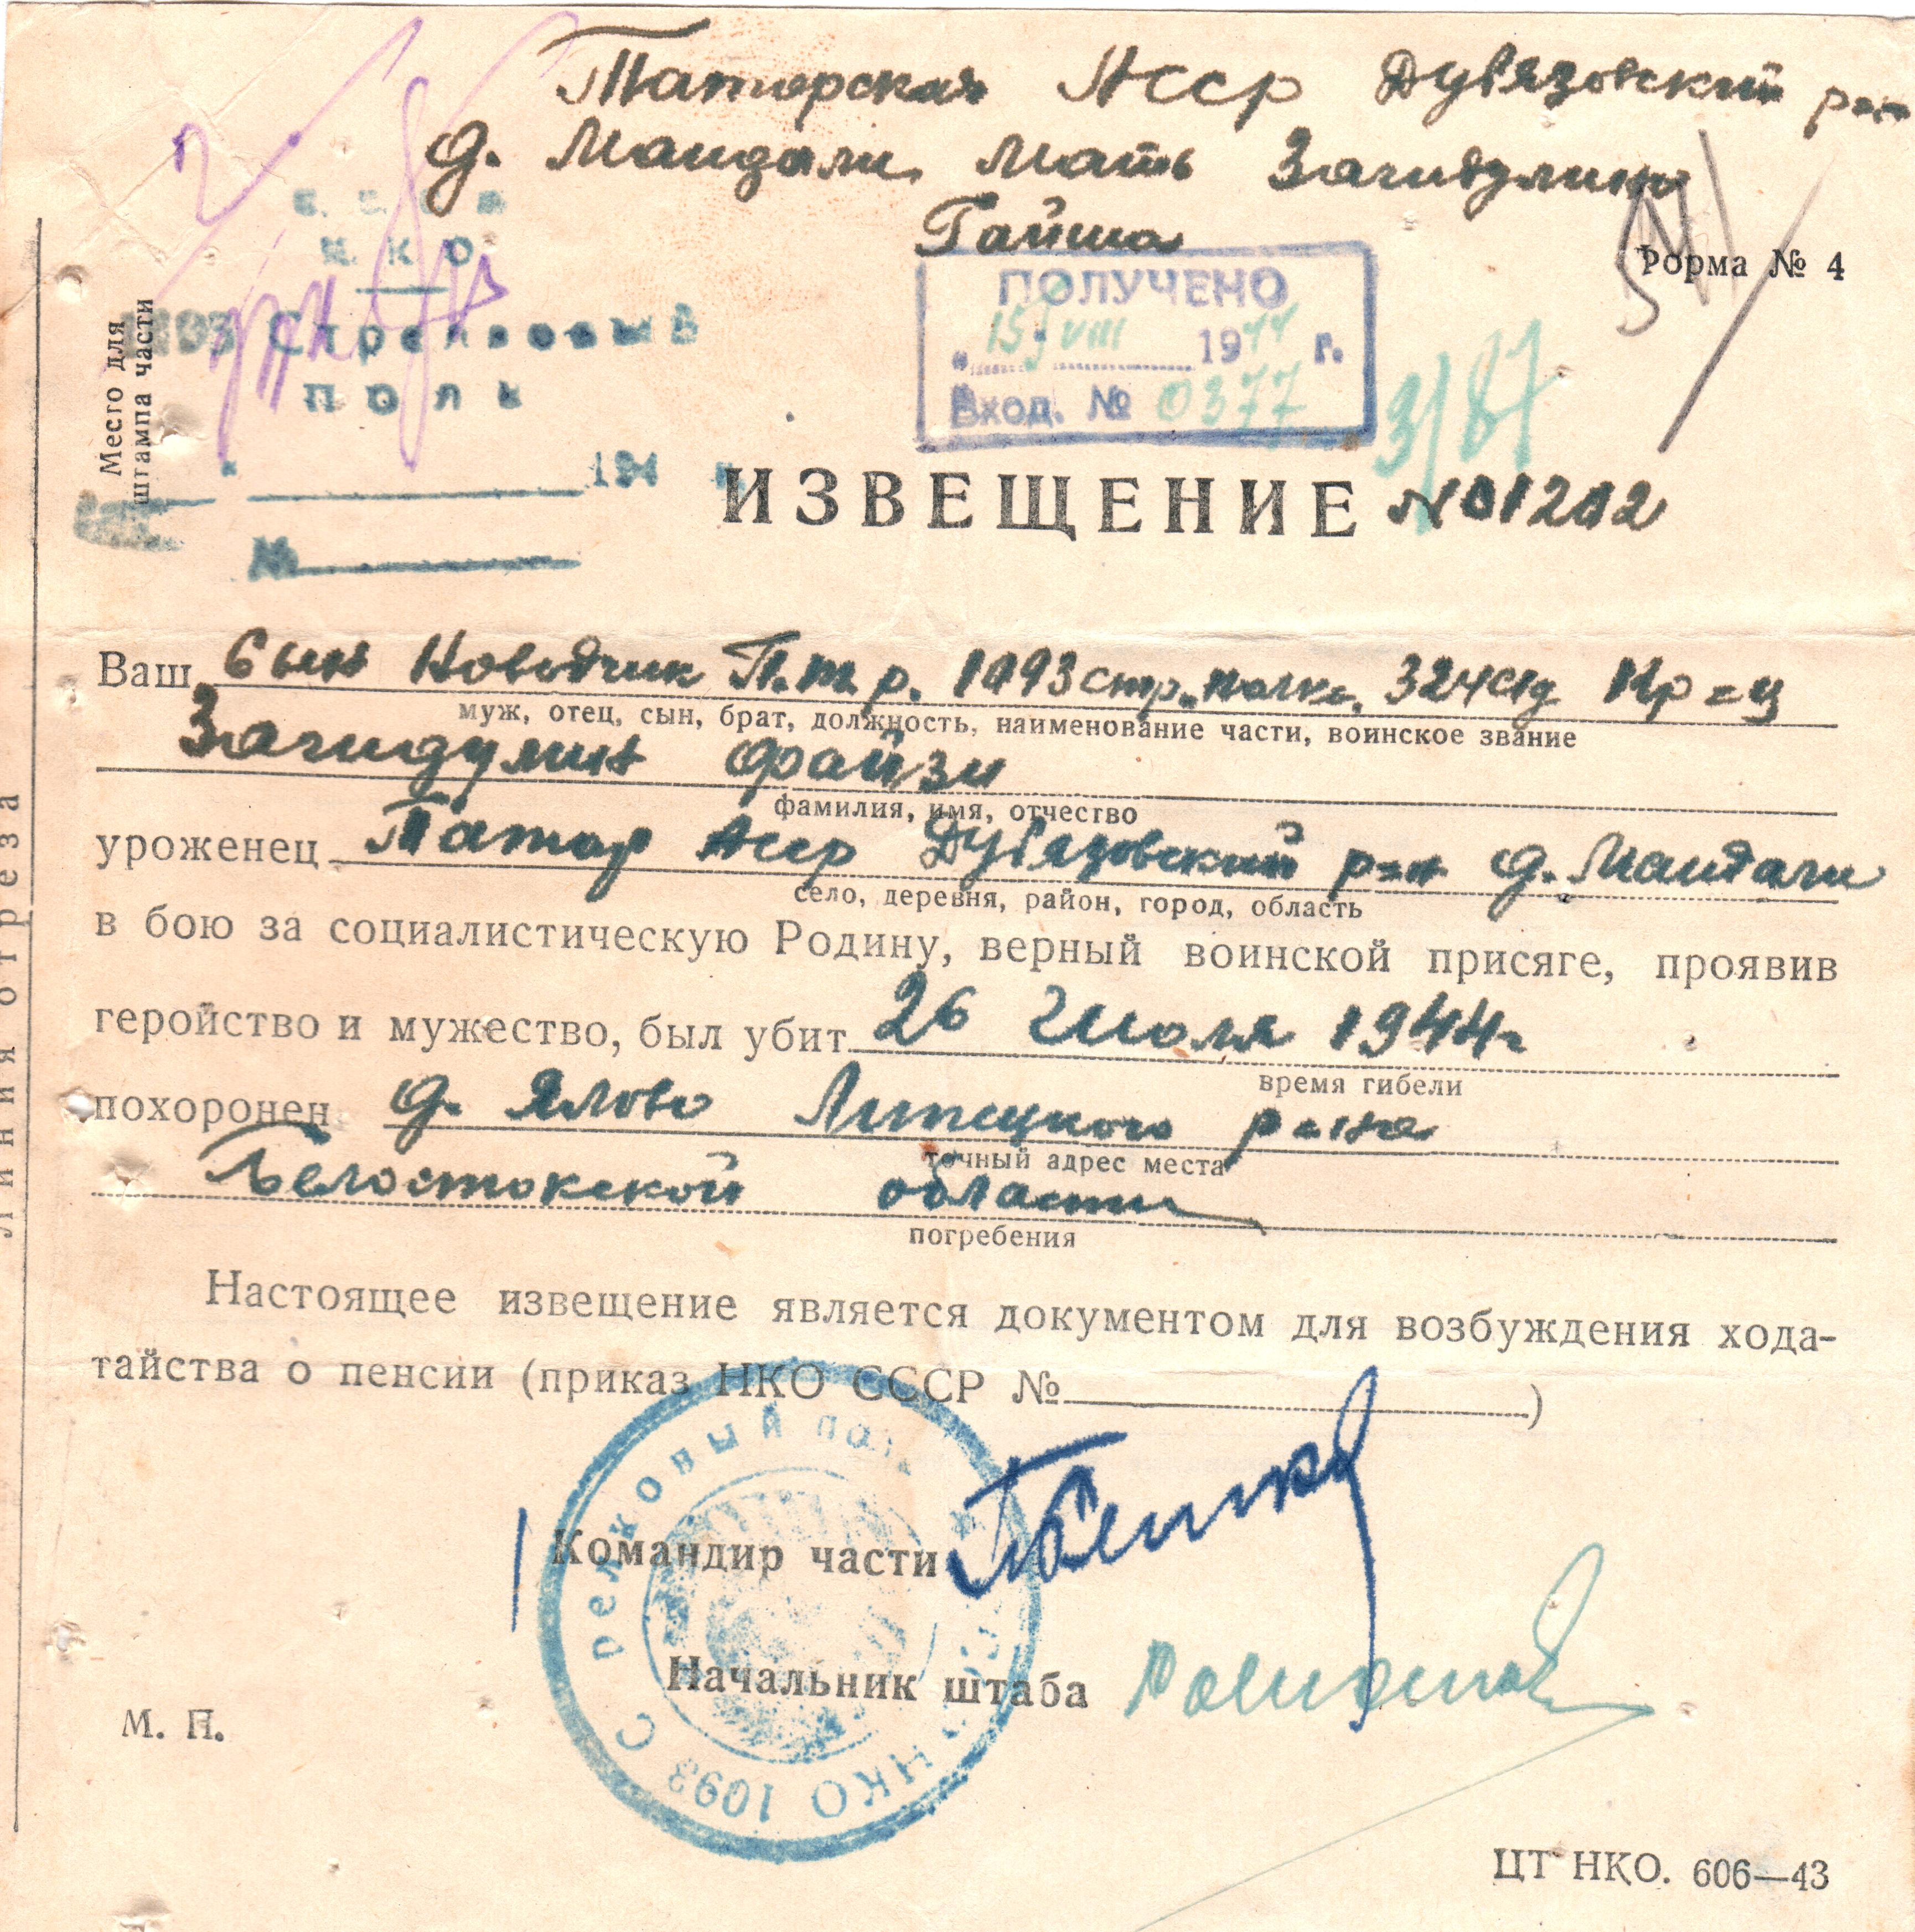 Татарская АССР Дубъязовский р-н
д. Мандали Мать Загидулина
Гайша
С. С. С. Р.
Н К О
1093 Стрелковый
Полк
194 г.
№
Место для
штампа части
ПОЛУЧЕНО
"15" VIII 1944 г.
Вход. № 0377
Форма № 4
3/87
ИЗВЕЩЕНИЕ №01202
Ваш сын Наводчик П.т.р. 1093 стр. полка, 324 сд Кр-ц
муж, отец, сын, брат, должность, наименование части, воинское звание
Загидулин Файзи
фамилия, имя, отчество
уроженец Татар АССР Дубъязовский р-н д. Мандали
село, деревня, район, город, область
в бою за социалистическую Родину, верный воинской присяге, проявив
геройство и мужество, был убит 26 Июля 1944г
время гибели
похоронен д. Ялово Липецкого р-на
точный адрес места
Белостокской области
погребения
Настоящее извещение является документом для возбуждения хода-
тайства о пенсии (приказ НКО СССР № )
Командир части
Начальник штаба
М. П.
НКО 1093 Стрелковый полк
ЦТ НКО. 606—43
Линия отреза